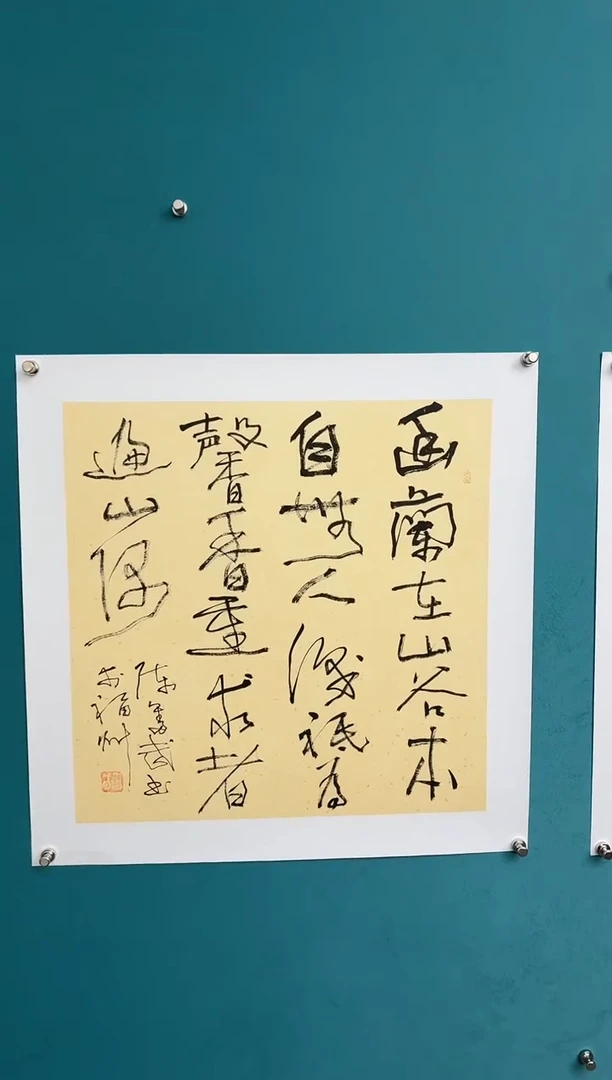 幽蘭在山谷本
自無人識祗為
馨香重求者
遍山隅
陳武書
於福州